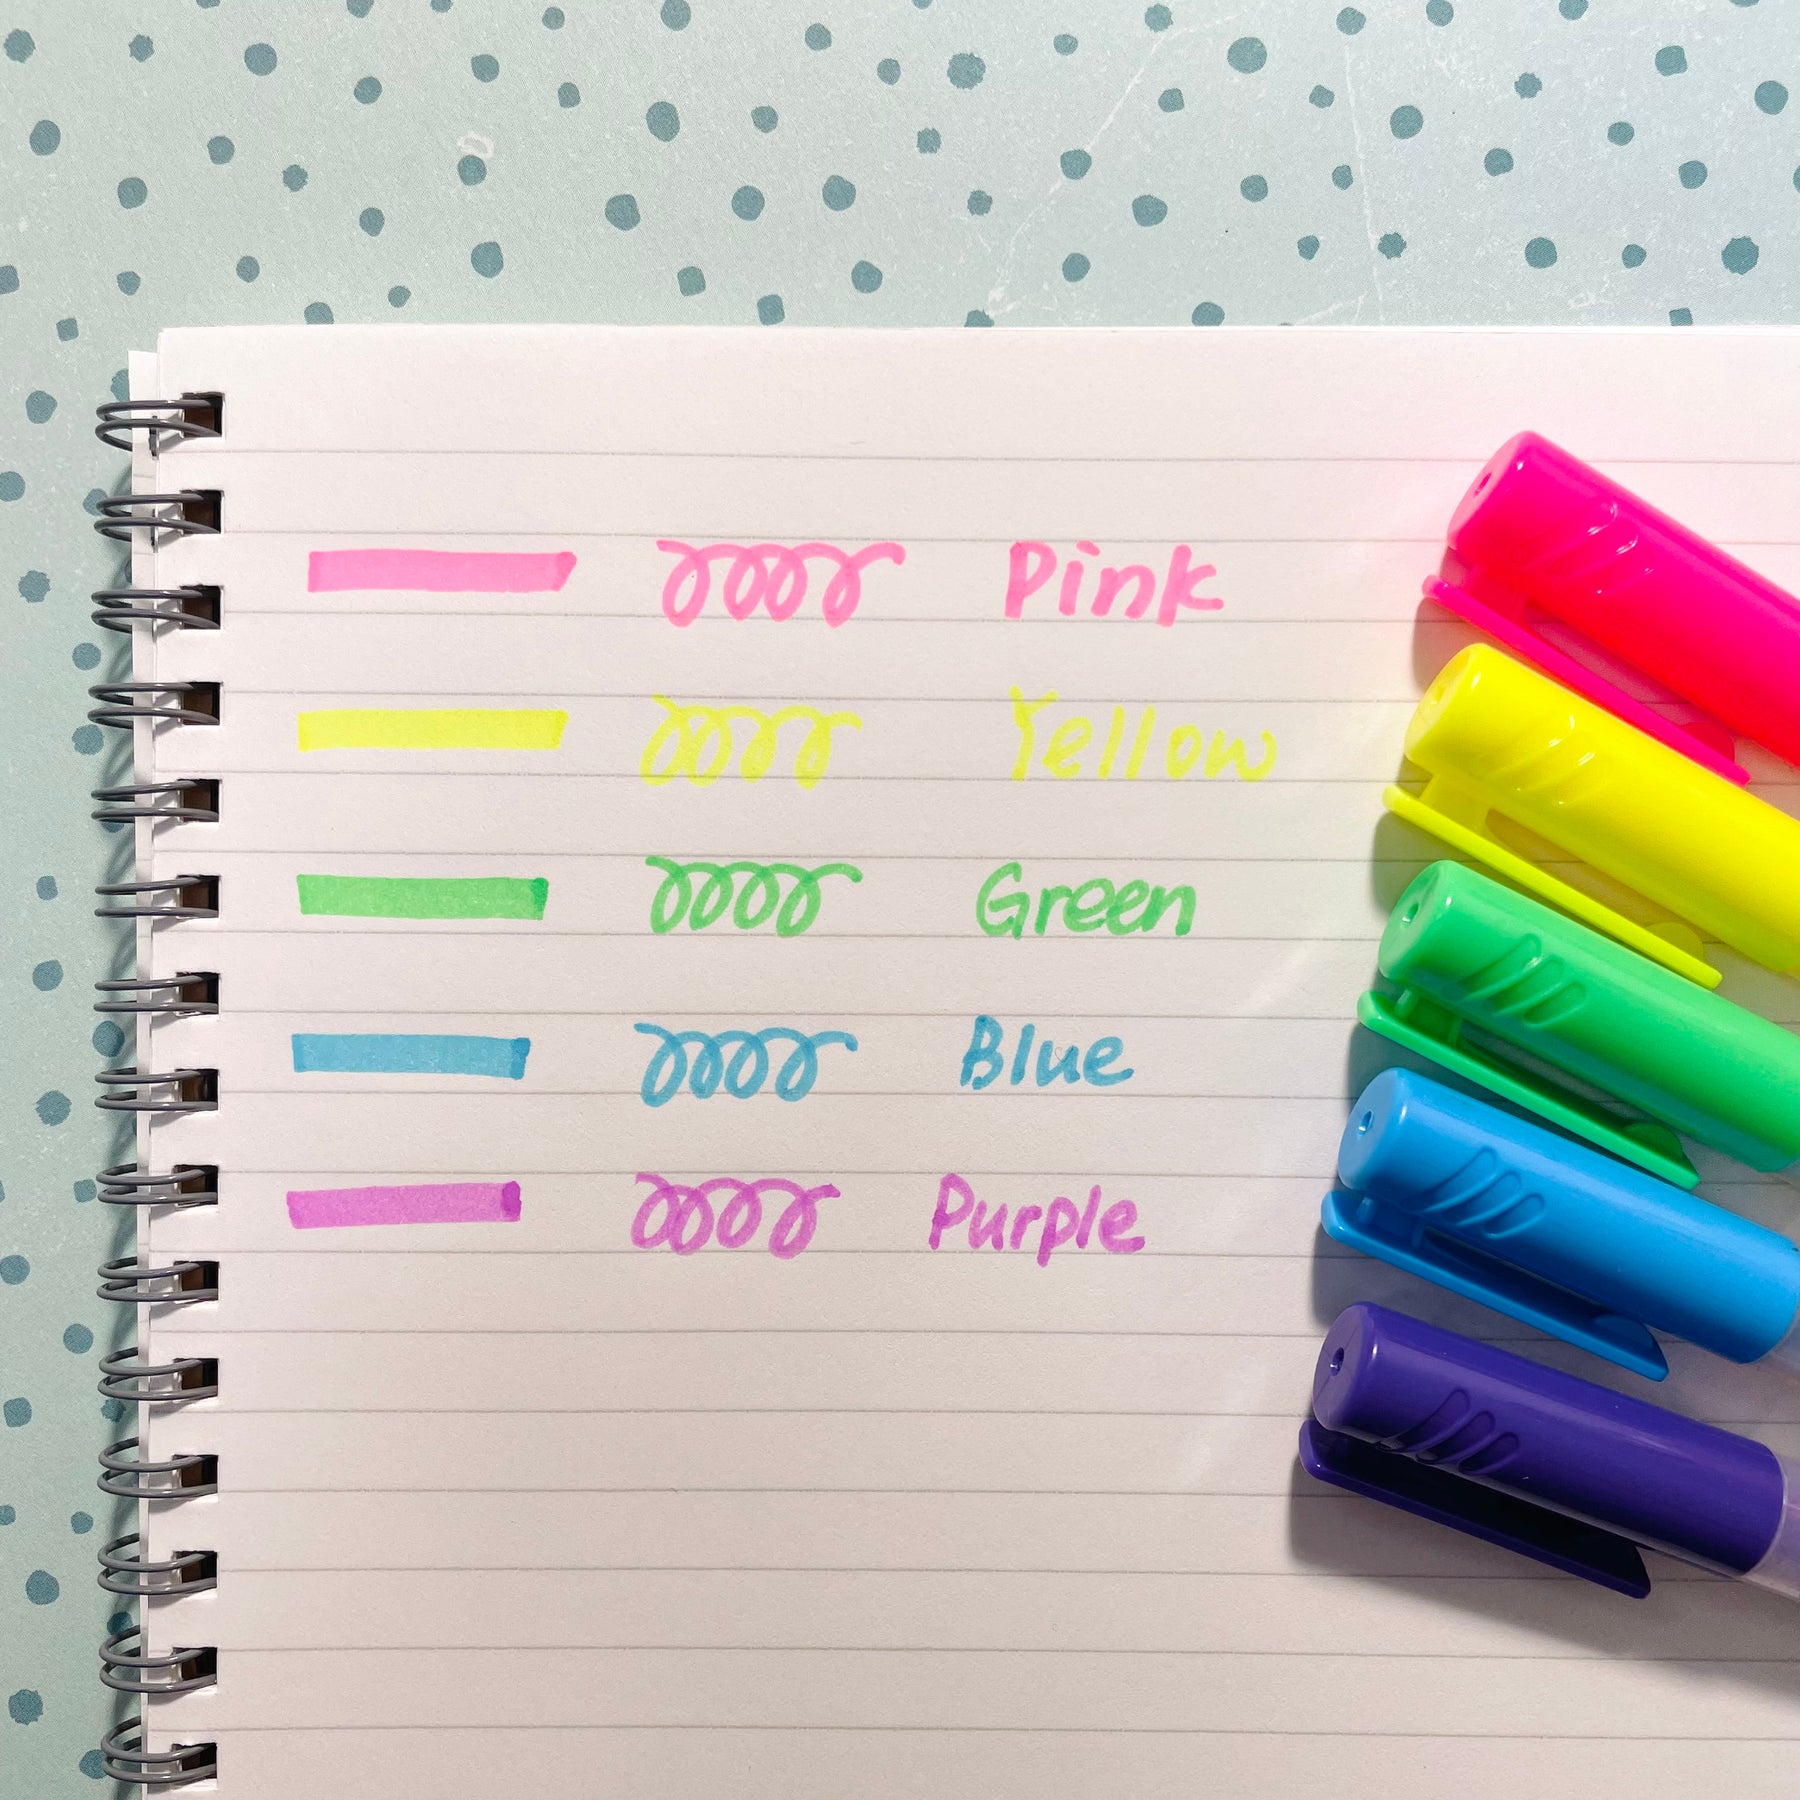 Pink
Yellow
Green
Blue
Purple